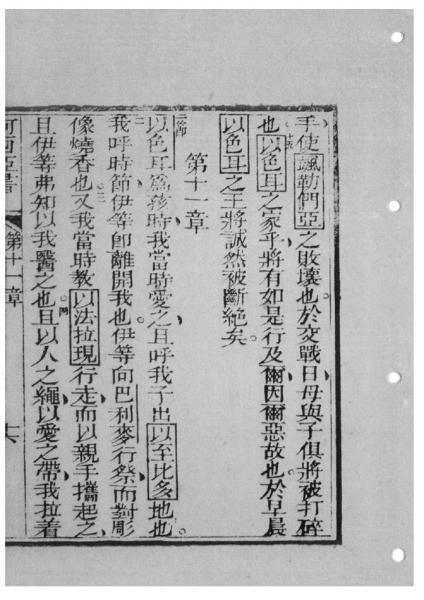 手使颯勒們亞之敗壞也於交戰日母與子俱將被打碎
也以色耳之家乎將有如是行及爾因爾惡故也於早晨
以色耳之王將誠然被斷絕矣
第十一章
以色耳爲孩時我當時愛之且呼我子出以至比多地也
我呼時節伊等卽離開我也伊等向巴利麥行祭而對彫
像燒香也又我當時教以法拉現行走而以親手攜起之
且伊等弗知以我醫之也且以人之繩以愛之帶我拉着
何西亞書 第十一章 六